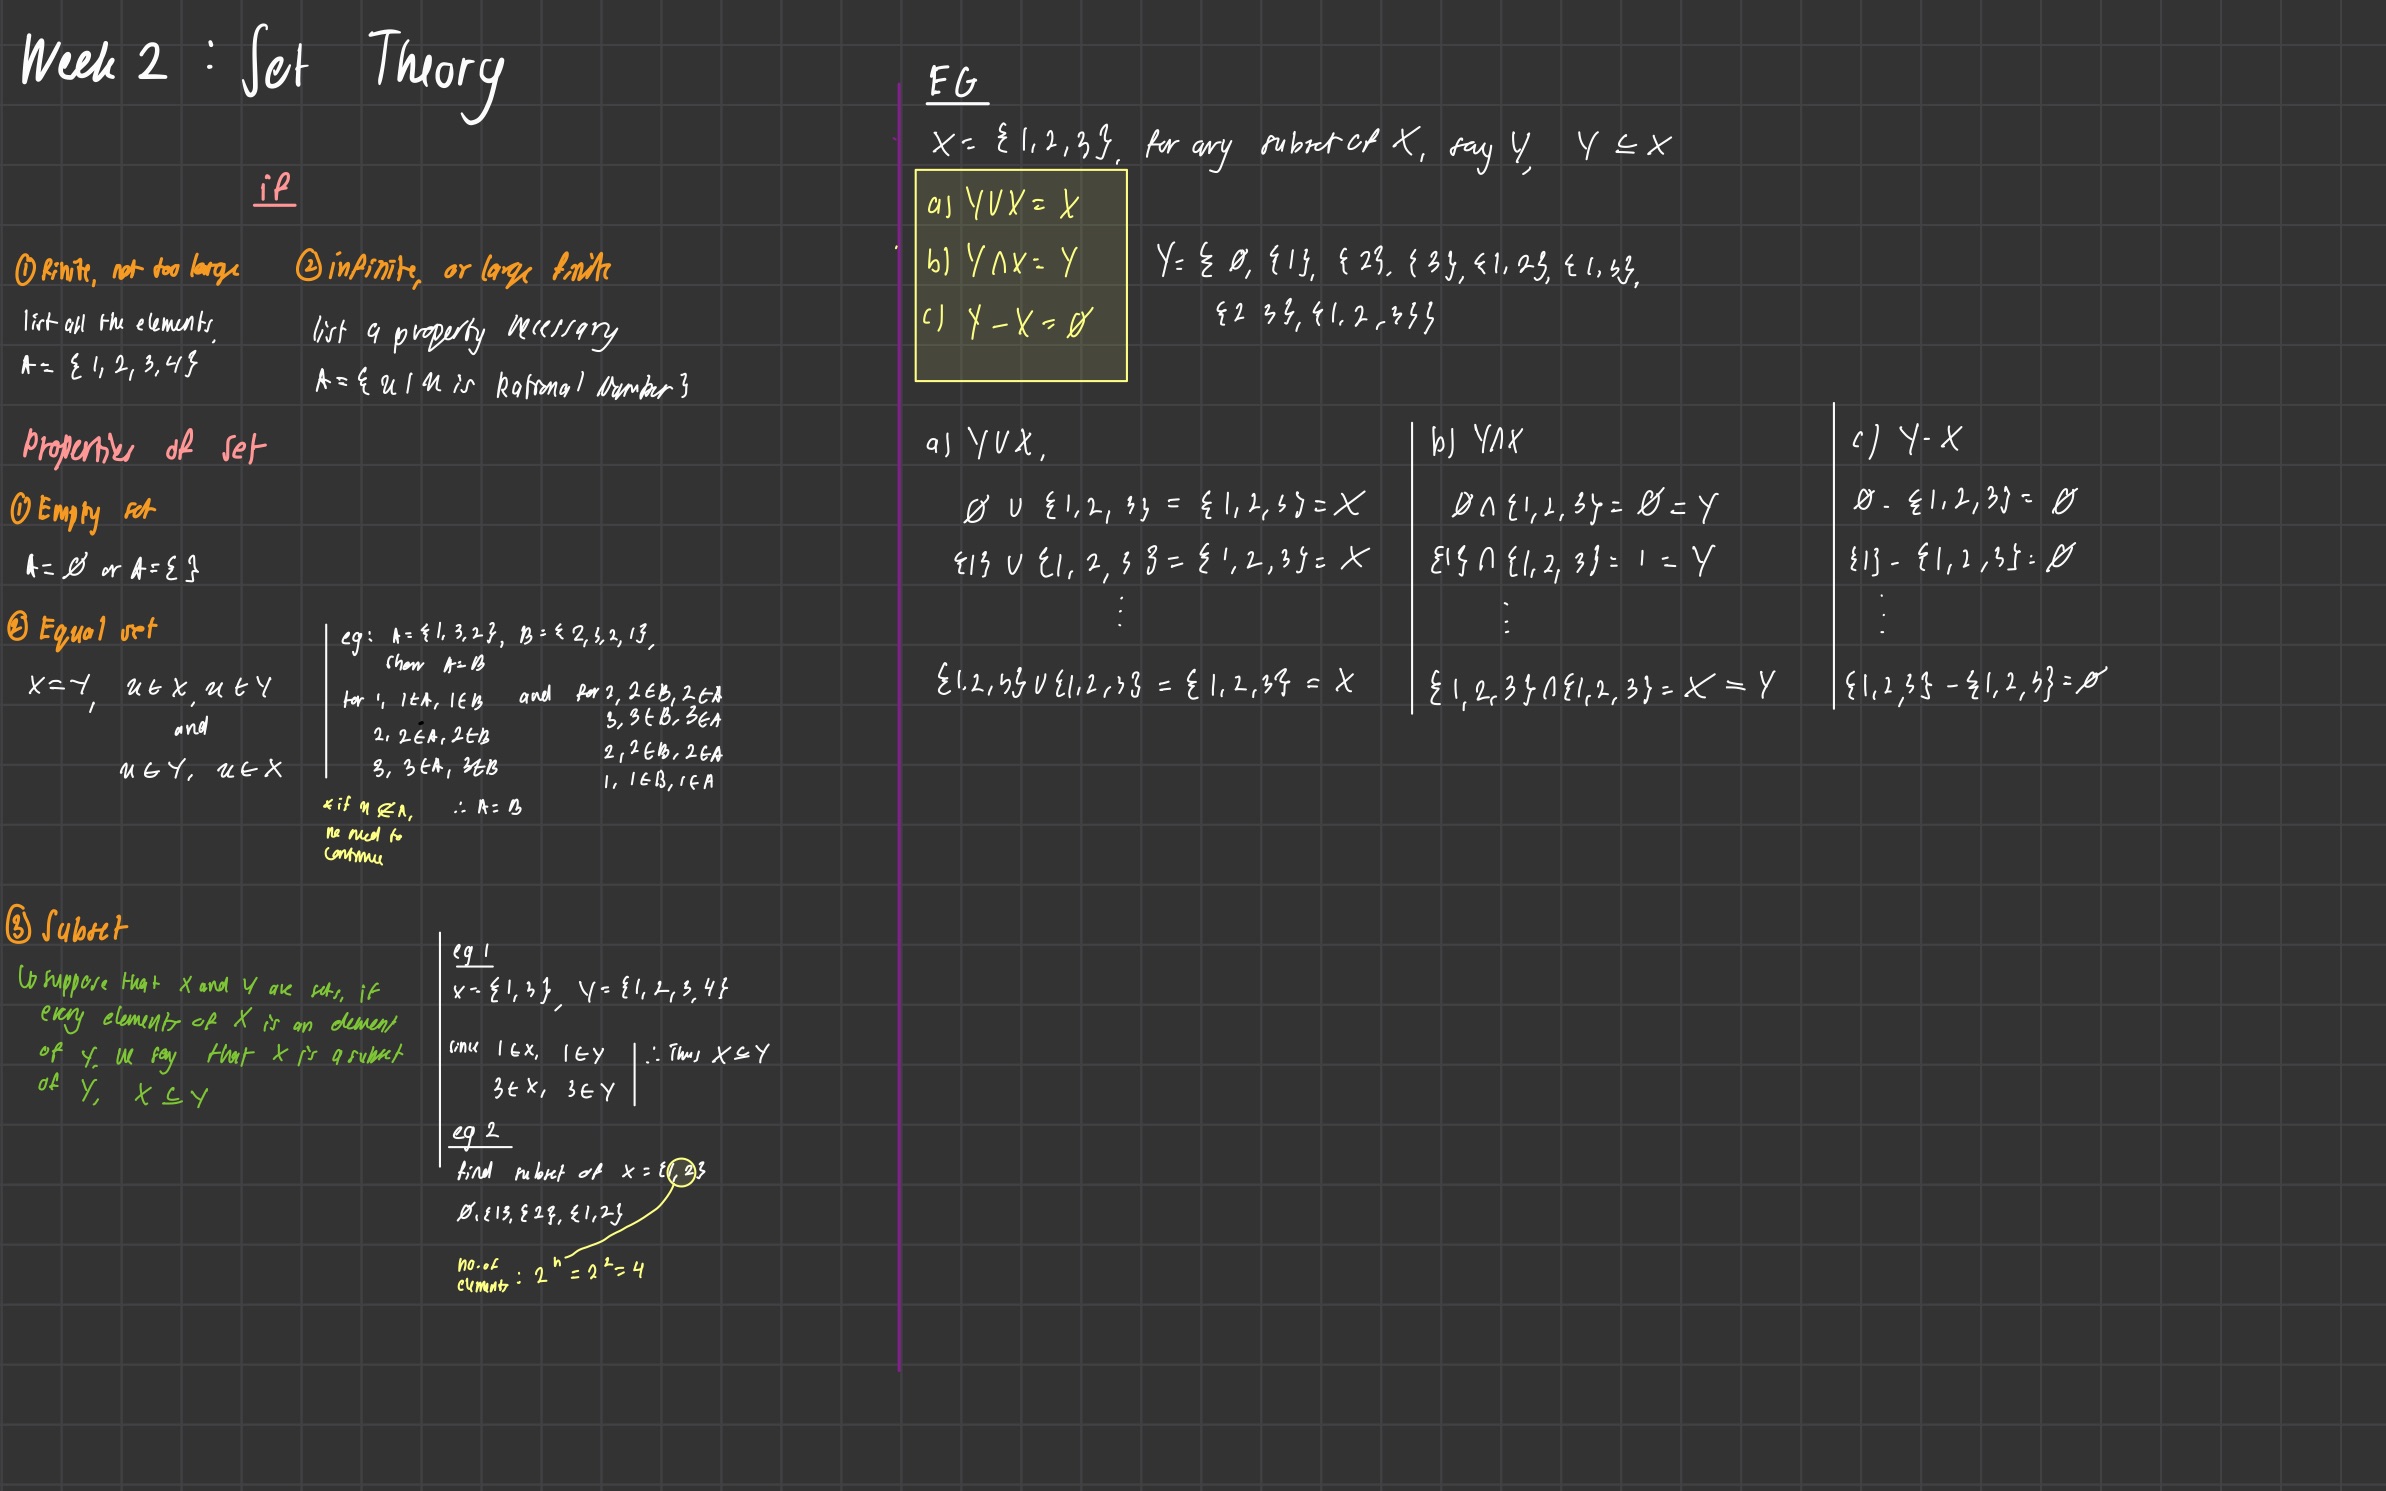 Week 2 : Set Theory
if
① finite, not too large
list all the elements,
A = { 1, 2, 3, 4}
② infinite, or large finite
list a property necessary
A = { x | x is Rational Number }
Properties of set
① Empty set
A = ∅ or A = { }
② Equal set
X = Y, x ∈ X, x ∈ Y
and
x ∈ Y, x ∈ X
eg: A = {1, 3, 2}, B = {2, 3, 2, 1},
show A = B
for 1, 1∈A, 1∈B and for 2, 2∈B, 2∈A
3, 3∈B, 3∈A
2, 2∈A, 2∈B
2, 2∈B, 2∈A
3, 3∈A, 3∈B
1, 1∈B, 1∈A
* if x ∉ A,
no need to
continue
∴ A = B
③ Subset
↳ suppose that X and Y are sets, if
every elements of X is an element
of Y, we say that X is a subset
of Y, X ⊆ Y
eg 1
X = {1, 3}, Y = {1, 2, 3, 4}
since 1 ∈ X, 1 ∈ Y ∴ Thus X ⊆ Y
3 ∈ X, 3 ∈ Y
eg 2
find subset of X = {1, 2}
∅, {1}, {2}, {1, 2}
no. of
elements : 2ⁿ = 2² = 4
EG
X = {1, 2, 3}, for any subset of X, say Y, Y ⊆ X
a) Y ∪ X = X
b) Y ∩ X = Y
c) Y − X = ∅
Y = { ∅, {1}, {2}, {3}, {1, 2}, {1, 3},
{2 3}, {1, 2, 3}}
a) Y ∪ X,
∅ ∪ {1, 2, 3} = {1, 2, 3} = X
{1} ∪ {1, 2, 3} = {1, 2, 3} = X
⋮
{1, 2, 3} ∪ {1, 2, 3} = {1, 2, 3} = X
b) Y ∩ X
∅ ∩ {1, 2, 3} = ∅ = Y
{1} ∩ {1, 2, 3} = 1 = Y
⋮
{1, 2, 3} ∩ {1, 2, 3} = X = Y
c) Y - X
∅ - {1, 2, 3} = ∅
{1} - {1, 2, 3} = ∅
⋮
{1, 2, 3} - {1, 2, 3} = ∅